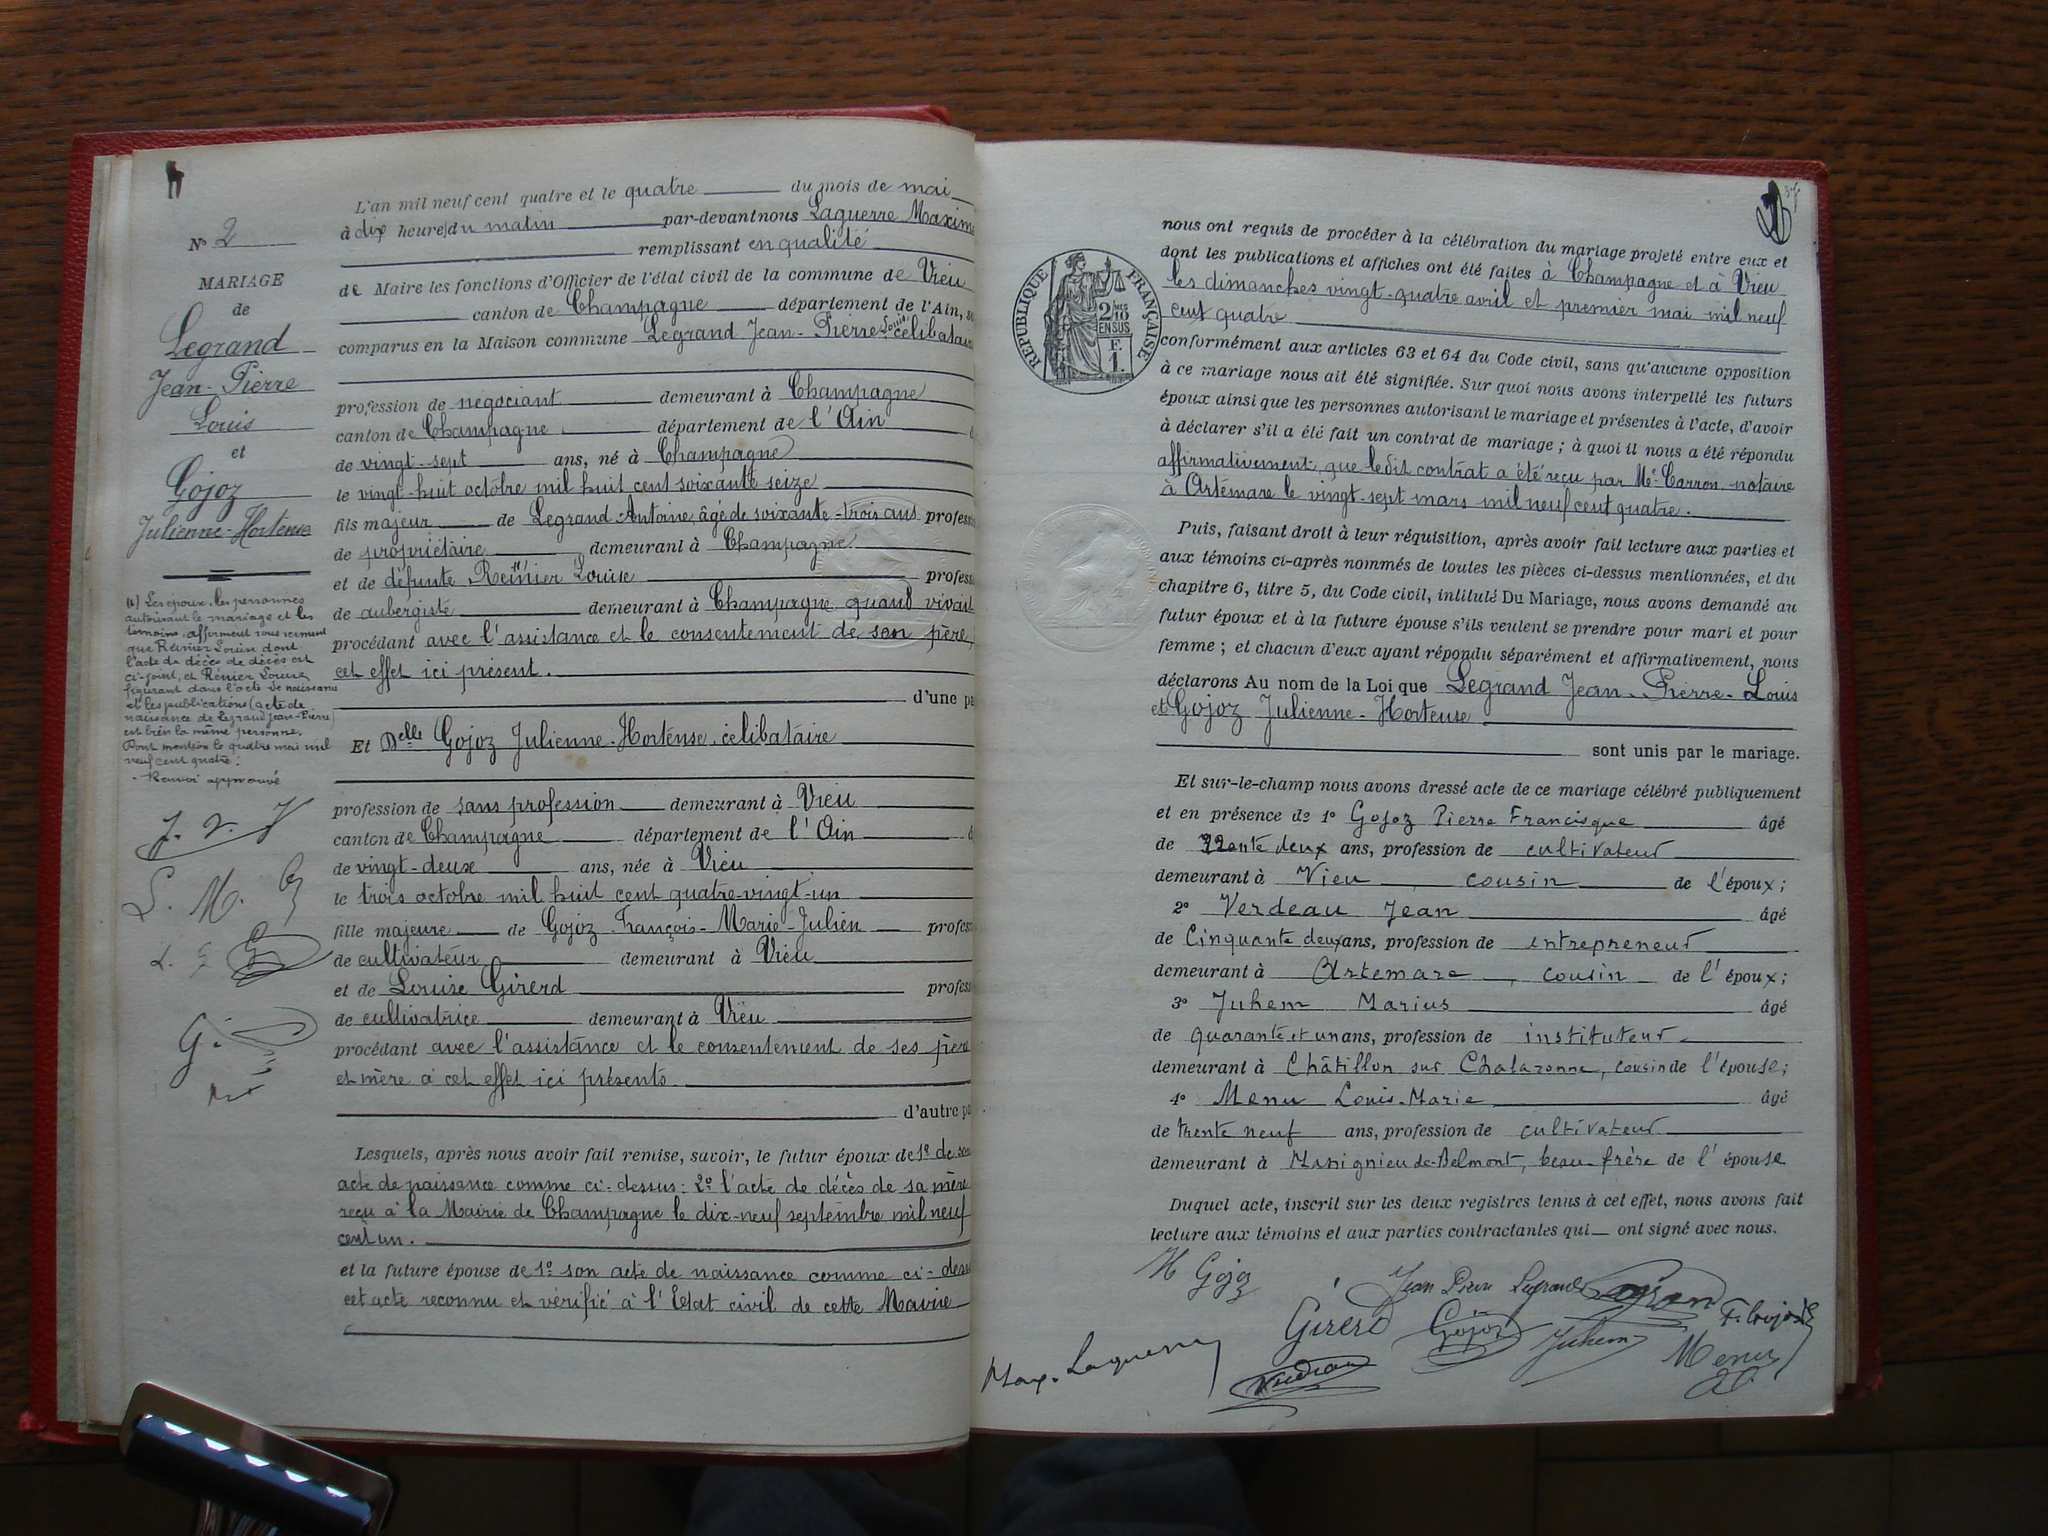 N° 2
MARIAGE
de
Legrand
Jean-Pierre
Louis
et
Gojoz
Julienne-Hortense
(1) Les époux, les personnes
autorisant le mariage et les
témoins, affirment sous serment
que Reinier Louise dont
l'acte de décès de décès est
ci-joint, et Rénier Louise
figurant dans l'acte de naissance
et les publications (acte de
naissance de Legrand Jean-Pierre)
est bien la même personne.
Dont mention le quatre mai mil
neuf cent quatre.
Renvoi approuvé
L'an mil neuf cent quatre et le quatre du mois de mai
à dix heures du matin par-devant nous Laguerre Maxime
remplissant en qualité
de Maire les fonctions d'Officier de l'état civil de la commune de Vieu
canton de Champagne département de l'Ain,
comparus en la Maison commune Legrand Jean-Pierre Louis célibataire
profession de négociant demeurant à Champagne
canton de Champagne département de l'Ain
de vingt-sept ans, né à Champagne
le vingt-huit octobre mil huit cent soixante seize
fils majeur de Legrand Antoine, âgé de soixante-trois ans profess
de propriétaire demeurant à Champagne
et de défunte Reinier Louise profess
de aubergiste demeurant à Champagne quand vivait
procédant avec l'assistance et le consentement de son père,
cet effet ici présent.
d'une pa
Et Delle Gojoz Julienne-Hortense, célibataire
profession de sans profession demeurant à Vieu
canton de Champagne département de l'Ain
de vingt-deux ans, née à Vieu
le trois octobre mil huit cent quatre-vingt-un
fille majeure de Gojoz François-Marie-Julien profess
de cultivateur demeurant à Vieu
et de Louise Girerd profess
de cultivatrice demeurant à Vieu
procédant avec l'assistance et le consentement de ses père
et mère à cet effet ici présents
d'autre pa
Lesquels, après nous avoir fait remise, savoir, le futur époux de 1° de son
acte de naissance comme ci-dessus: 2° l'acte de décès de sa mère
reçu à la Mairie de Champagne le dix-neuf septembre mil neuf
cent un.
et la future épouse de 1° son acte de naissance comme ci-dess
cet acte reconnu et vérifié à l'Etat civil de cette Mairie
nous ont requis de procéder à la célébration du mariage projeté entre eux et
dont les publications et affiches ont été faites à Champagne et à Vieu
les dimanches vingt-quatre avril et premier mai mil neuf
cent quatre
RÉPUBLIQUE FRANÇAISE
2/10 EN SUS
F. 1.
conformément aux articles 63 et 64 du Code civil, sans qu'aucune opposition
à ce mariage nous ait été signifiée. Sur quoi nous avons interpellé les futurs
époux ainsi que les personnes autorisant le mariage et présentes à l'acte, d'avoir
à déclarer s'il a été fait un contrat de mariage; à quoi il nous a été répondu
affirmativement, que ledit contrat a été reçu par Me Carron, notaire
à Artemare le vingt-sept mars mil neuf cent quatre.
Puis, faisant droit à leur réquisition, après avoir fait lecture aux parties et
aux témoins ci-après nommés de toutes les pièces ci-dessus mentionnées, et du
chapitre 6, titre 5, du Code civil, intitulé Du Mariage, nous avons demandé au
futur époux et à la future épouse s'ils veulent se prendre pour mari et pour
femme; et chacun d'eux ayant répondu séparément et affirmativement, nous
déclarons Au nom de la Loi que Legrand Jean-Pierre-Louis
et Gojoz Julienne-Hortense
sont unis par le mariage.
Et sur-le-champ nous avons dressé acte de ce mariage célébré publiquement
et en présence de 1° Gojoz Pierre Francisque âgé
de trente deux ans, profession de cultivateur
demeurant à Vieu, cousin de l'époux;
2° Verdeau Jean âgé
de Cinquante deux ans, profession de entrepreneur
demeurant à Artemare, cousin de l'époux;
3° Juhem Marius âgé
de quarante et un ans, profession de instituteur
demeurant à Châtillon sur Chalaronne, cousin de l'épouse;
4° Menu Louis-Marie âgé
de trente neuf ans, profession de cultivateur
demeurant à Marignieu-de-Belmont, beau-frère de l'épouse
Duquel acte, inscrit sur les deux registres tenus à cet effet, nous avons fait
lecture aux témoins et aux parties contractantes qui ont signé avec nous.
H Gojoz
Jean Pierre Legrand
Legrand
F. Gojoz
Girerd
Gojoz
Juhem
Menu
Max. Laguerre
Verdeau